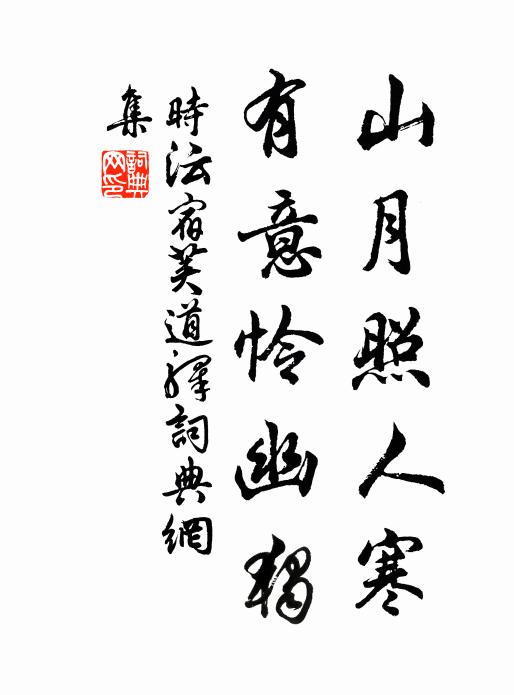 山月照人寒
有意怜幽獨
時沄宿芙道驛詞典網
集
詞典網印